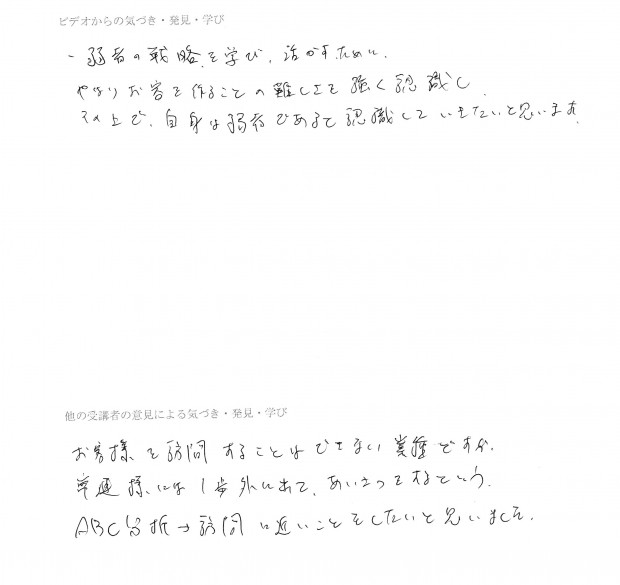 ビデオからの気づき・発見・学び
・弱者の戦略を学び、活かすために、
やはりお客を作ることの難しさを強く認識し、
その上で、自身は弱者であると認識していきたいと思います。
他の受講者の意見による気づき・発見・学び
お客様を訪問することはできない業種ですが、
常連様には1歩外に出て、あいさつをするという、
ABC分析→訪問に近いことをしたいと思いました。